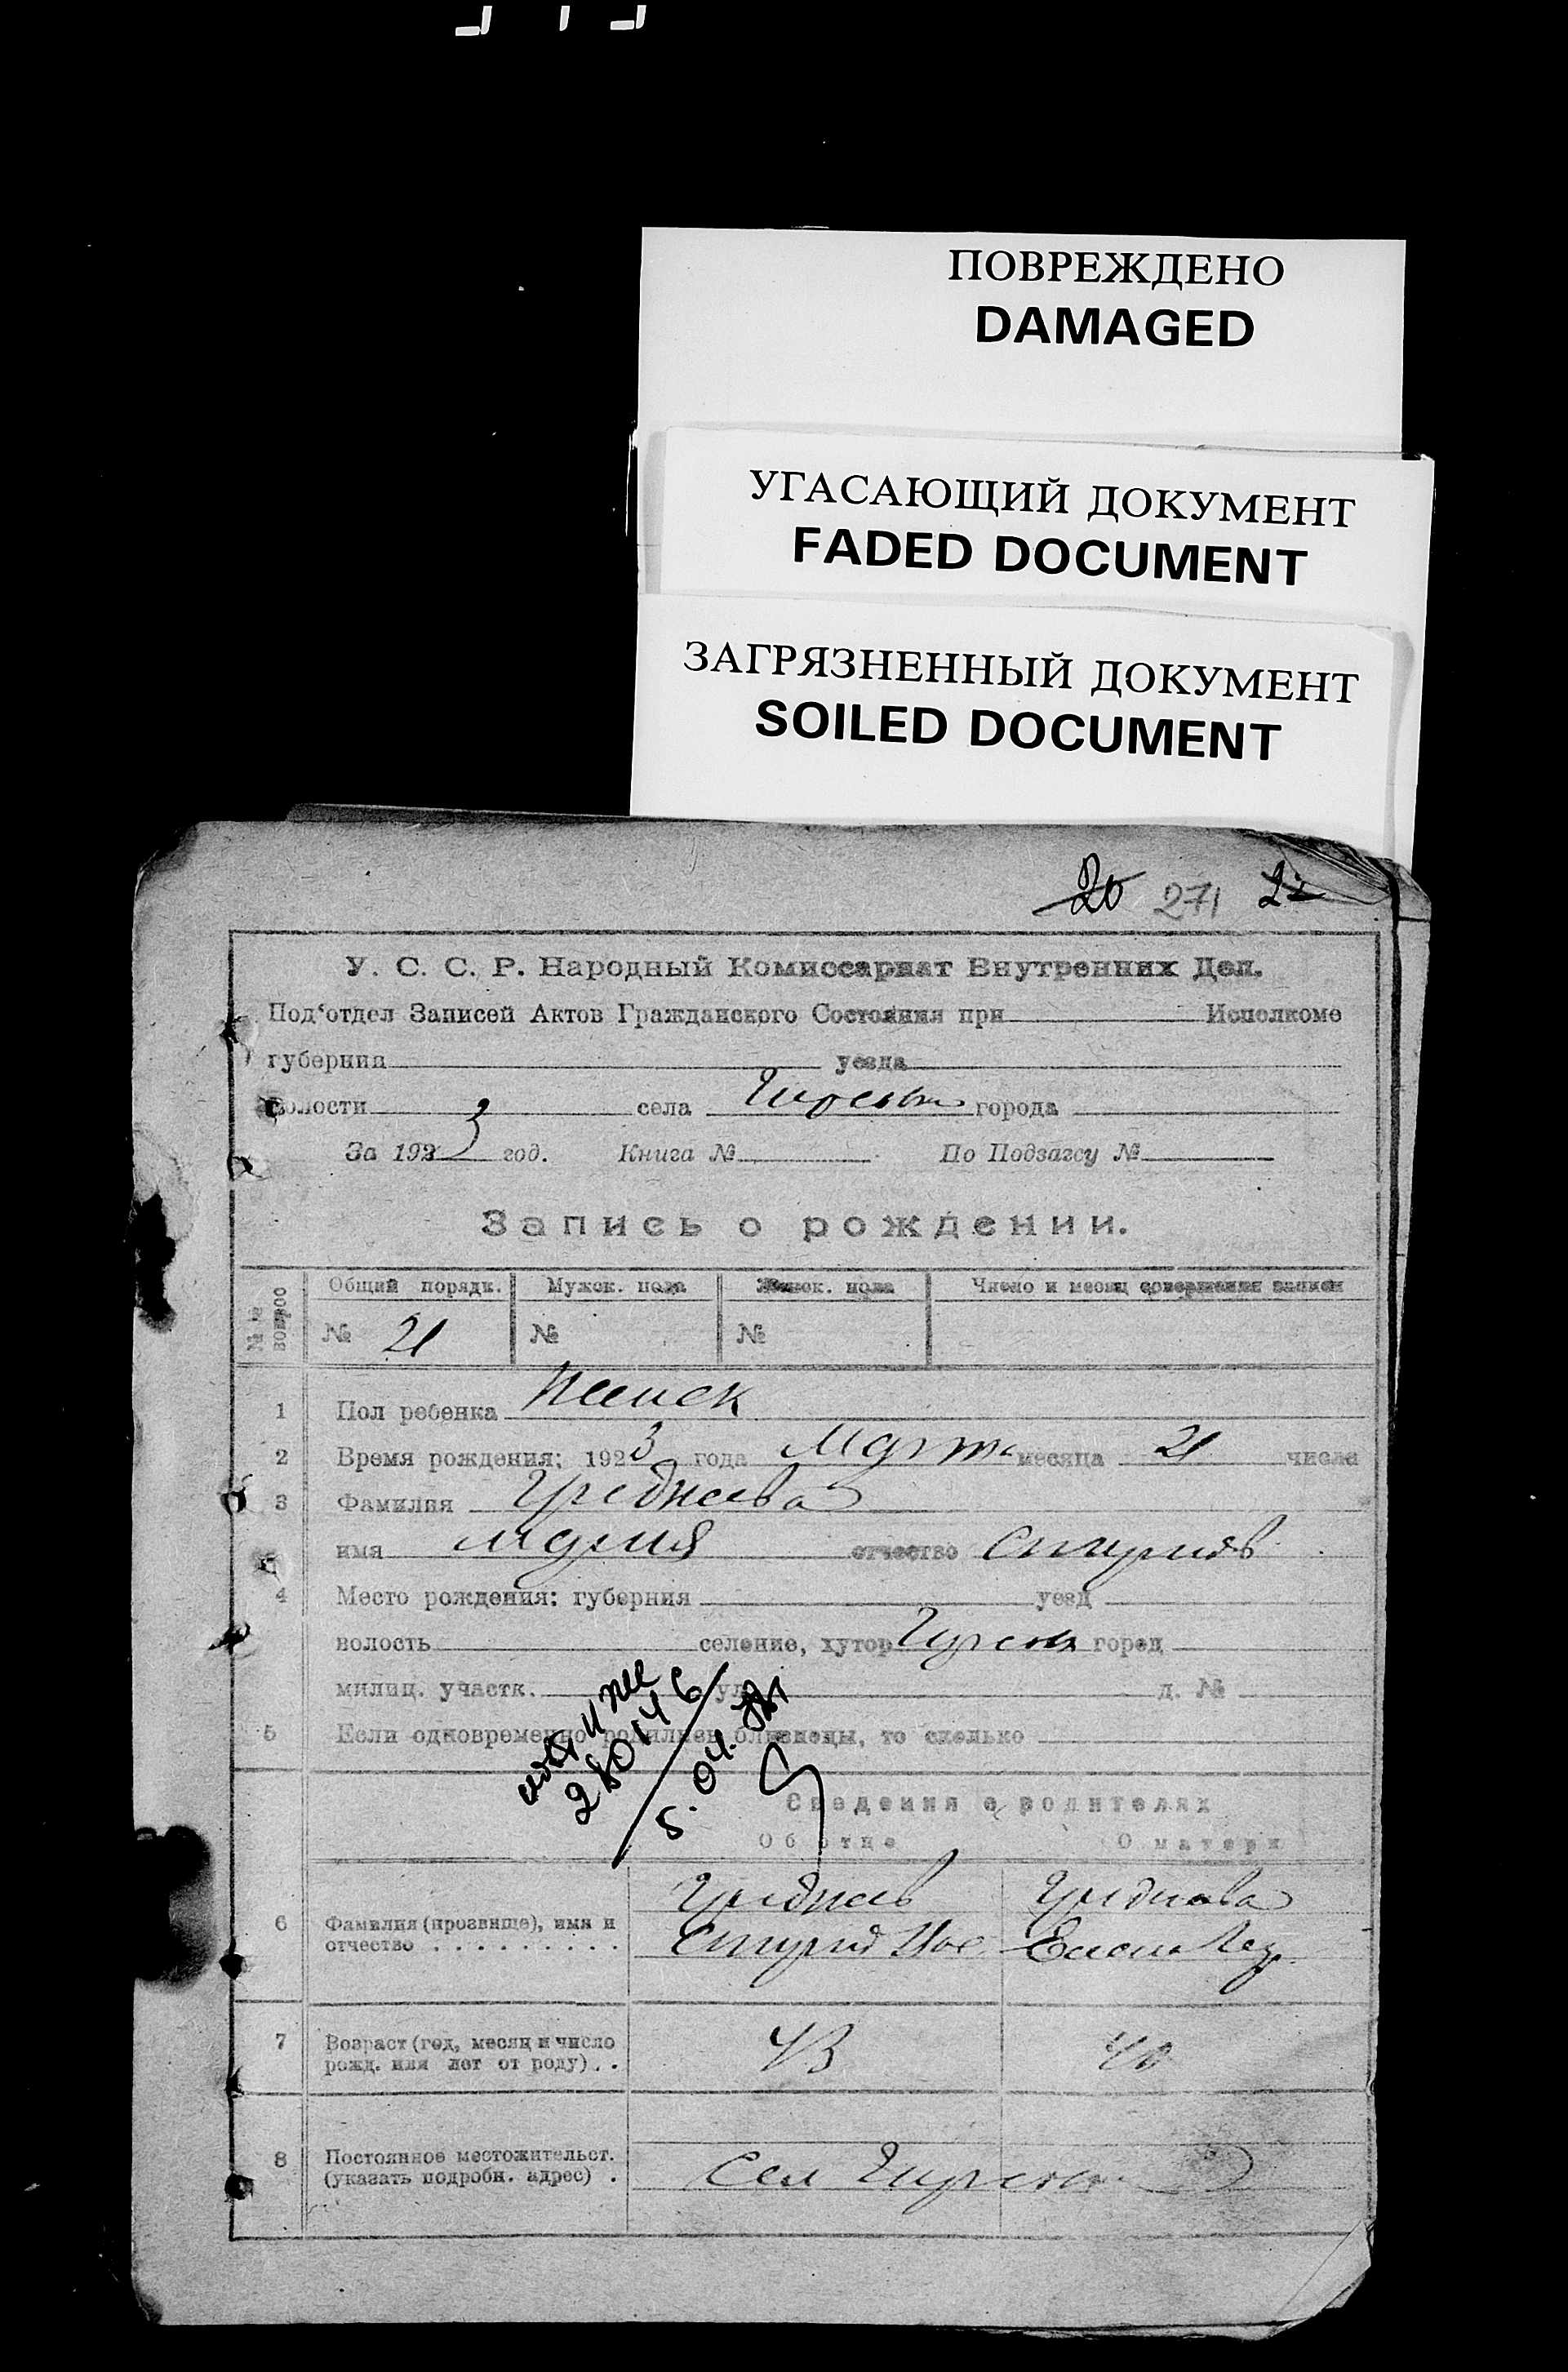 ПОВРЕЖДЕНО
DAMAGED
УГАСАЮЩИЙ ДОКУМЕНТ
FADED DOCUMENT
ЗАГРЯЗНЕННЫЙ ДОКУМЕНТ
SOILED DOCUMENT
20 271 22
У. С. С. Р. Народный Комиссариат Внутренних Дел.
Под‘отдел Записей Актов Гражданского Состояния при Исполкоме
губернии уезда
волости села города
За 1923 год. Книга № По Подзагсу №
Запись о рождении.
№№ вопрос
Общий порядк. Мужск. пола Женск. пола Число и месяц совершения записи
№ 21 № №
1 Пол ребенка Женск
2 Время рождения: 1923 года Марта месяца 21 числа
3 Фамилия
имя Мария отчество
4 Место рождения: губерния уезд
волость селение, хутор город
милиц. участк. ул. д. №
28014 6
5.04.
5 Если одновременно родились близнецы, то сколько
Сведения о родителях
Об отце О матери
6 Фамилия (прозвище), имя и
отчество . . . . . . . . . Елена
7 Возраст (год, месяц и число
рожд. или лет от роду) . . 43 40
8 Постоянное местожительст.
(указать подробн. адрес) . Сел